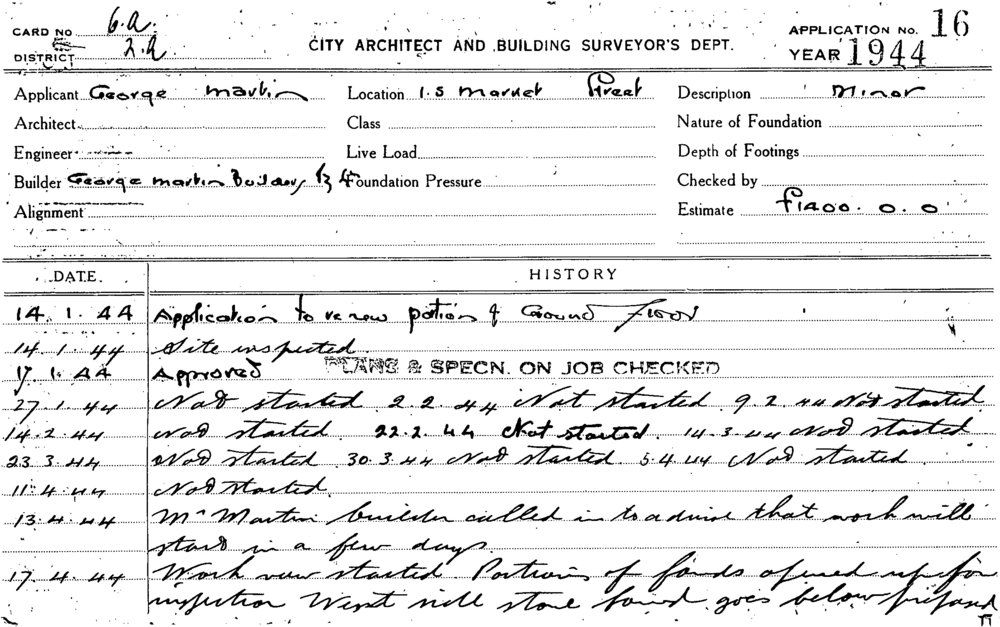 CARD NO 6.a.
DISTRICT 2.a.
CITY ARCHITECT AND BUILDING SURVEYOR'S DEPT.
APPLICATION No. 16
YEAR 1944
Applicant George Martin Location 1.5 Market Street Description Minor
Architect Class Nature of Foundation
Engineer Live Load Depth of Footings
Builder George Martin Builders Foundation Pressure Checked by
Alignment Estimate £1400. 0. 0
DATE. HISTORY
14. 1. 44 Application to renew portion of Ground Floor
14. 1. 44 Site inspected.
17. 1. 44 Approved PLANS & SPECN. ON JOB CHECKED
27. 1. 44 Not started 2. 2. 44 Not started 9. 2. 44 Not started
14. 2. 44 Not started. 22. 2. 44 Not started. 14. 3. 44 Not started
23. 3. 44 Not started 30. 3. 44 Not started. 5. 4. 44 Not started.
11. 4. 44 Not started.
13. 4. 44 Mr Martin builder called in to advise that work will
start in a few days.
17. 4. 44 Work now started. Portions of opened up for
inspection West side stone found goes below